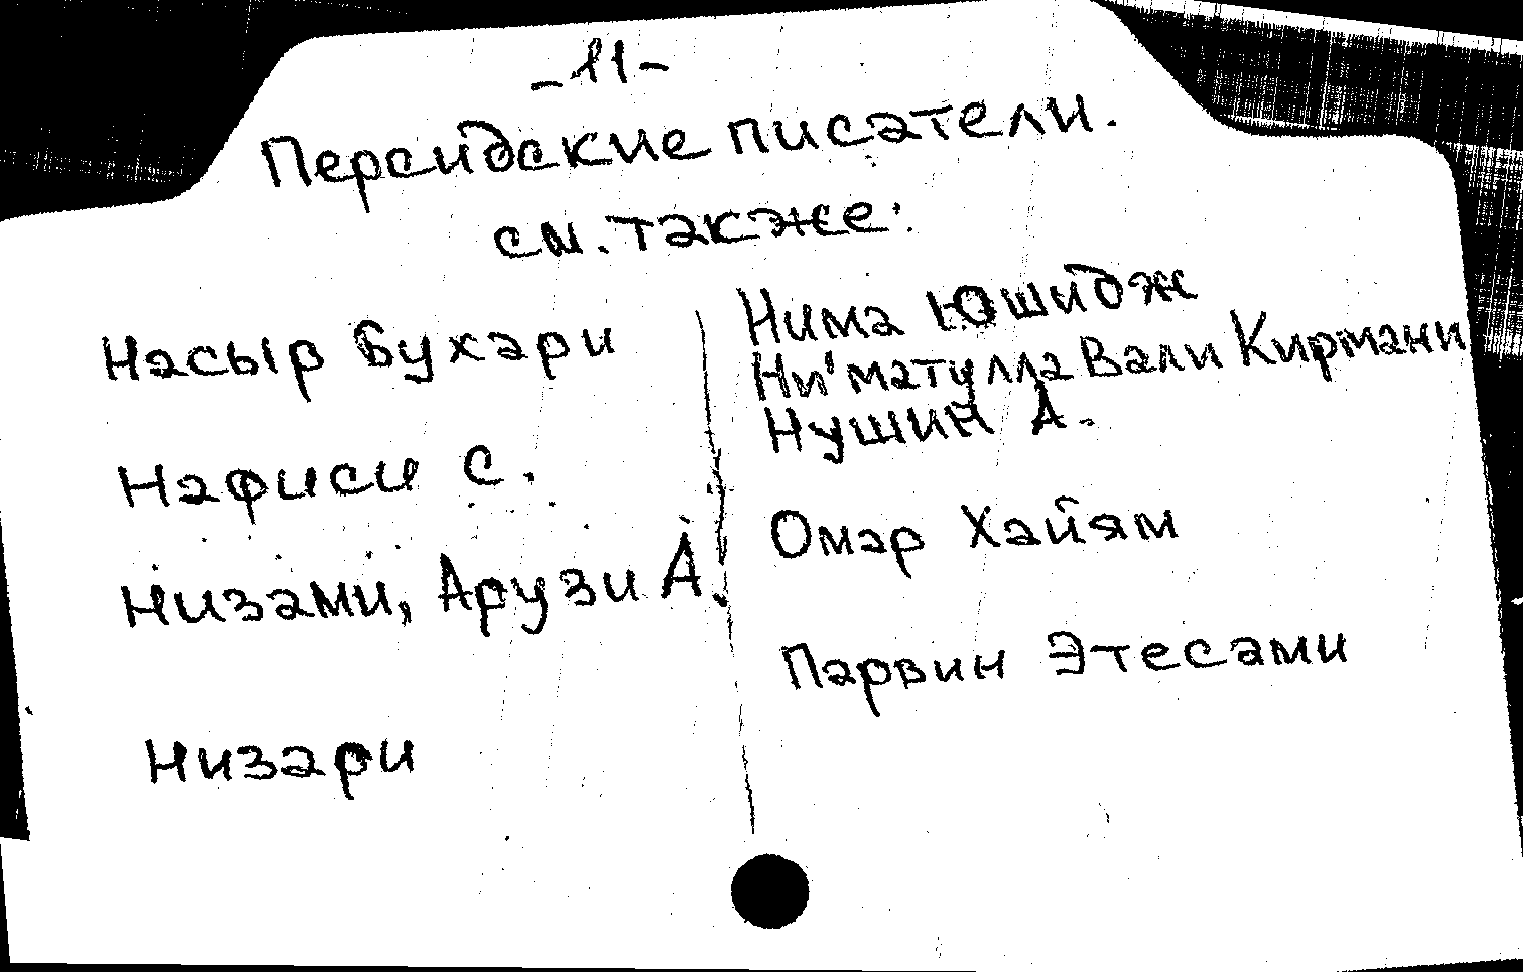 -11-
Персидские писатели.
см. также:
Насыр Бухари
Нафиси С.
Низами, Арузи А.
Низари
Нима Юшидж
Ни'матулла Вали Кирмани
Нушин А.
Омар Хайям
Парвин Этесами